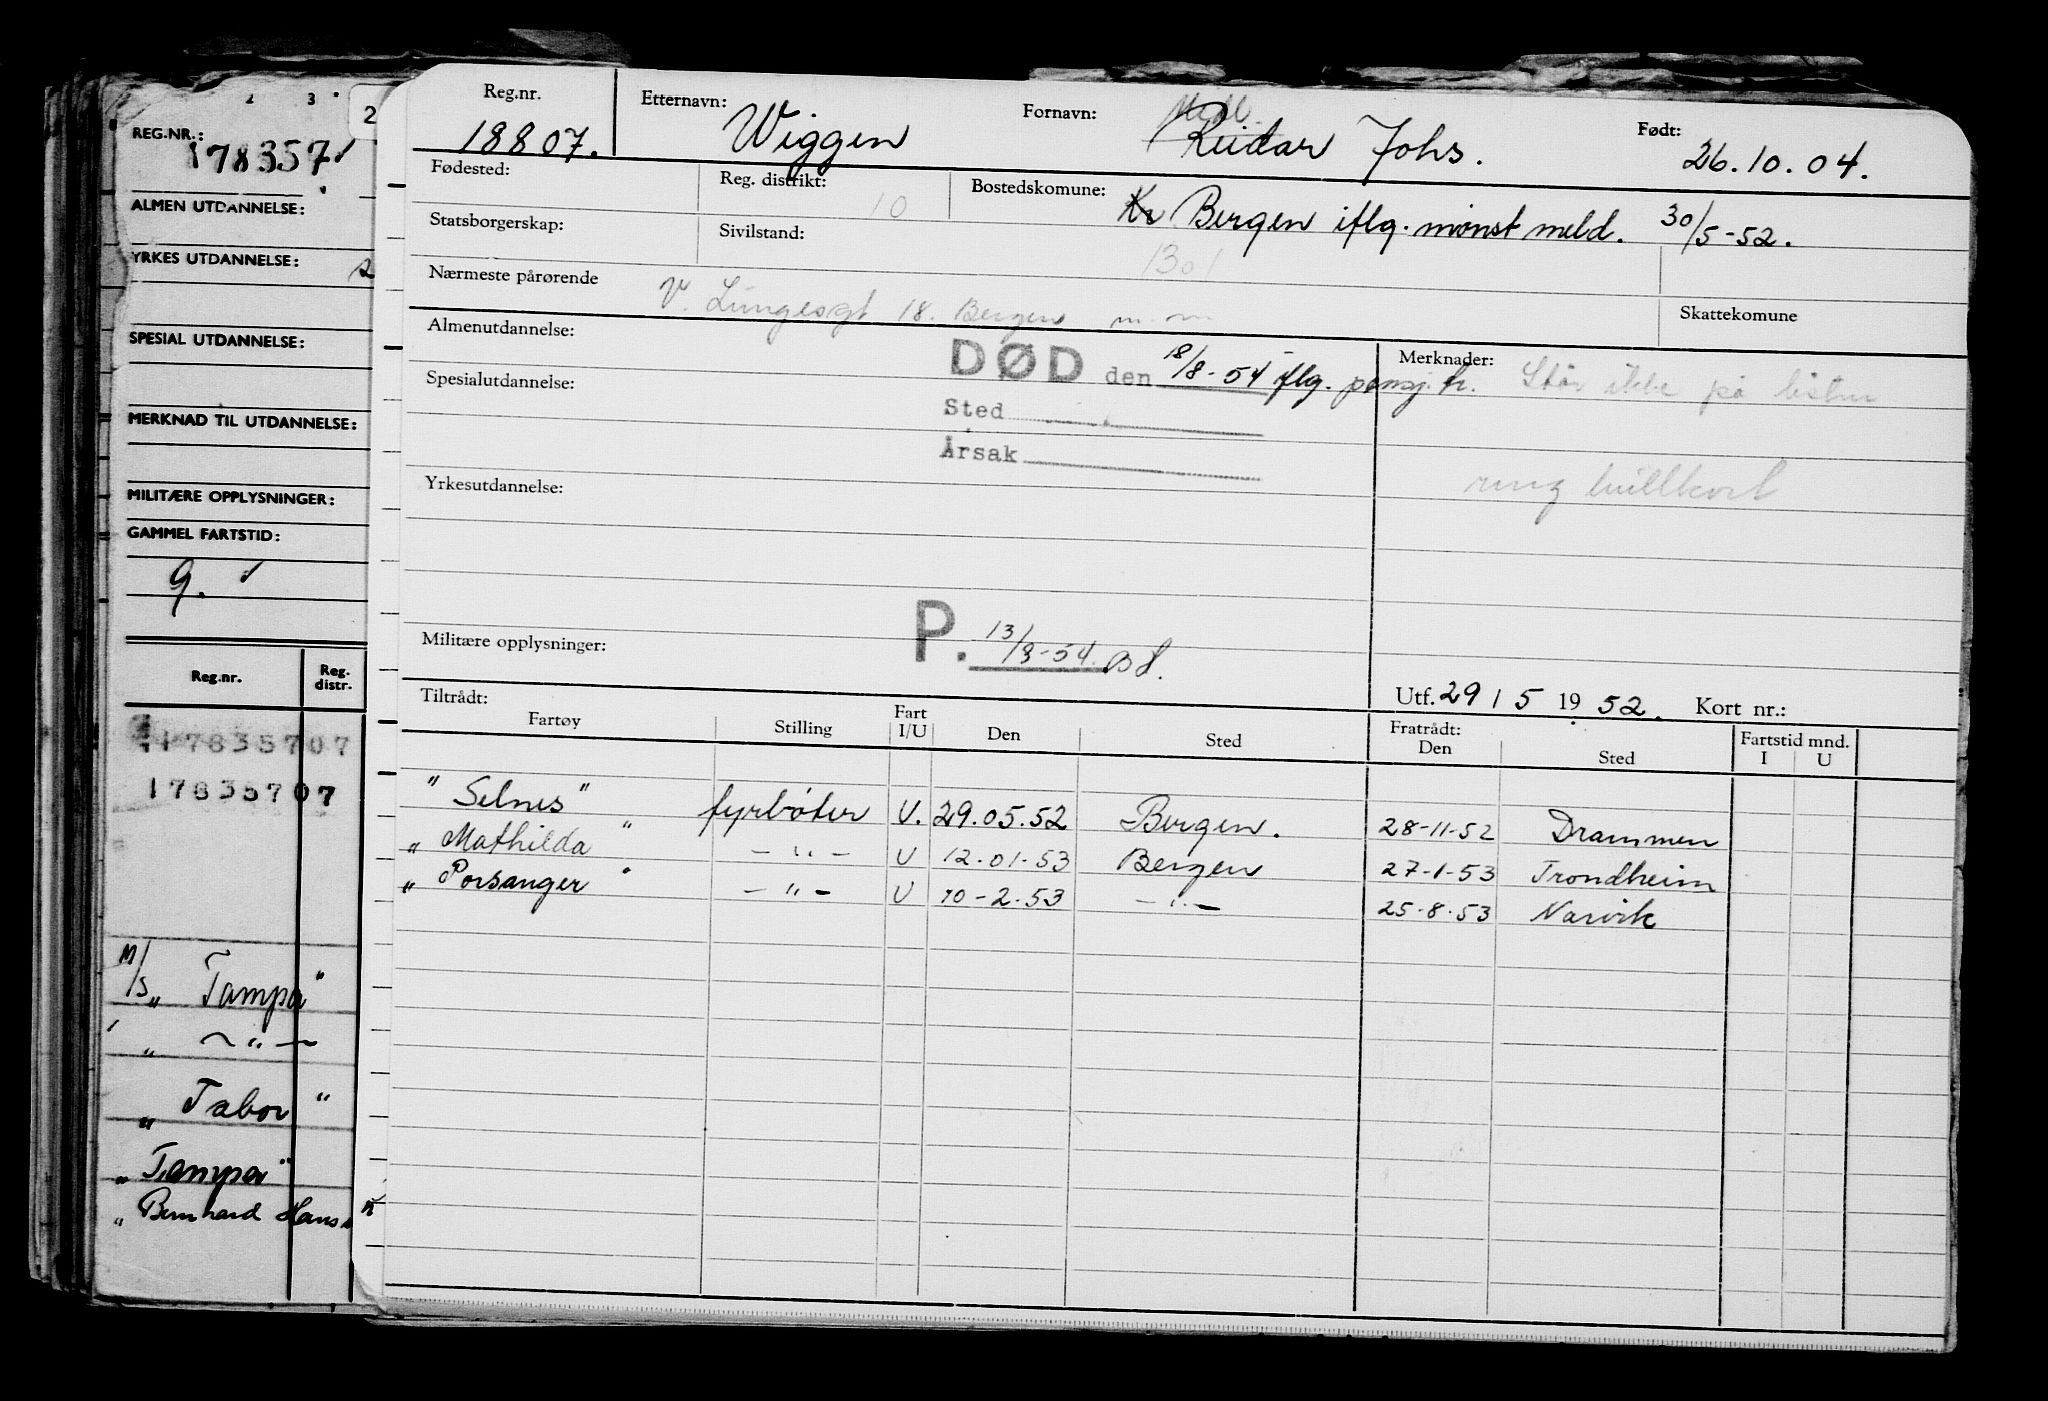 2 3
REG.NR.: 178357
2
ALMEN UTDANNELSE:
YRKES UTDANNELSE:
SPESIAL UTDANNELSE:
MERKNAD TIL UTDANNELSE:
MILITÆRE OPPLYSNINGER:
GAMMEL FARTSTID:
9.
Reg.nr. Reg. distr.
17835707
17835707
M/S „ Tampa "
„ — " —
„ Tabor "
„ Tampa "
„ Bernhard Hans
Reg.nr. Etternavn: Fornavn: Født:
18807. Wiggen Reidar Johs. 26.10.04.
Fødested: Reg. distrikt: 10 Bostedskomune: Kr Bergen iflg. mønst meld. 30/5-52.
Statsborgerskap: Sivilstand: 1301
Nærmeste pårørende V. Lungesgt 18. Bergen Skattekomune
Almenutdannelse: DØD den 18/8-54 iflg. pensj. tr. Merknader: Står ikke på listen
Spesialutdannelse:
Sted
Årsak
Yrkesutdannelse: hullkort
Militære opplysninger: P. 13/8-54.
Utf. 29 / 5 19 52. Kort nr.:
Tiltrådt: Fratrådt:
Fartøy Stilling Fart I/U Den Sted Den Sted Fartstid mnd. I U
" Selnes " fyrbøter U. 29.05.52 Bergen. 28-11-52 Drammen
„ Mathilda " — " — U 12.01.53 Bergen 27-1-53 Trondheim
„ Porsanger " — " — U 10-2.53 — " — 25-8-53 Narvik